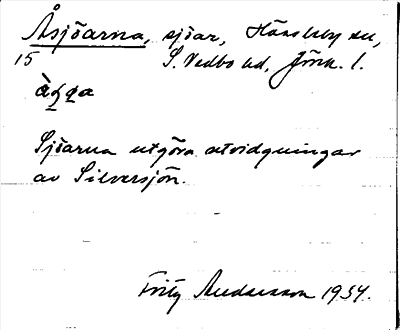 Åsjöarna, sjöar, Hässleby sn,
15 S. Vedbo hd, Jönk. l.
àʒʒa
Sjöarna utgöra utvidgningar
av Silversjön.
Fritz Andersson 1934.